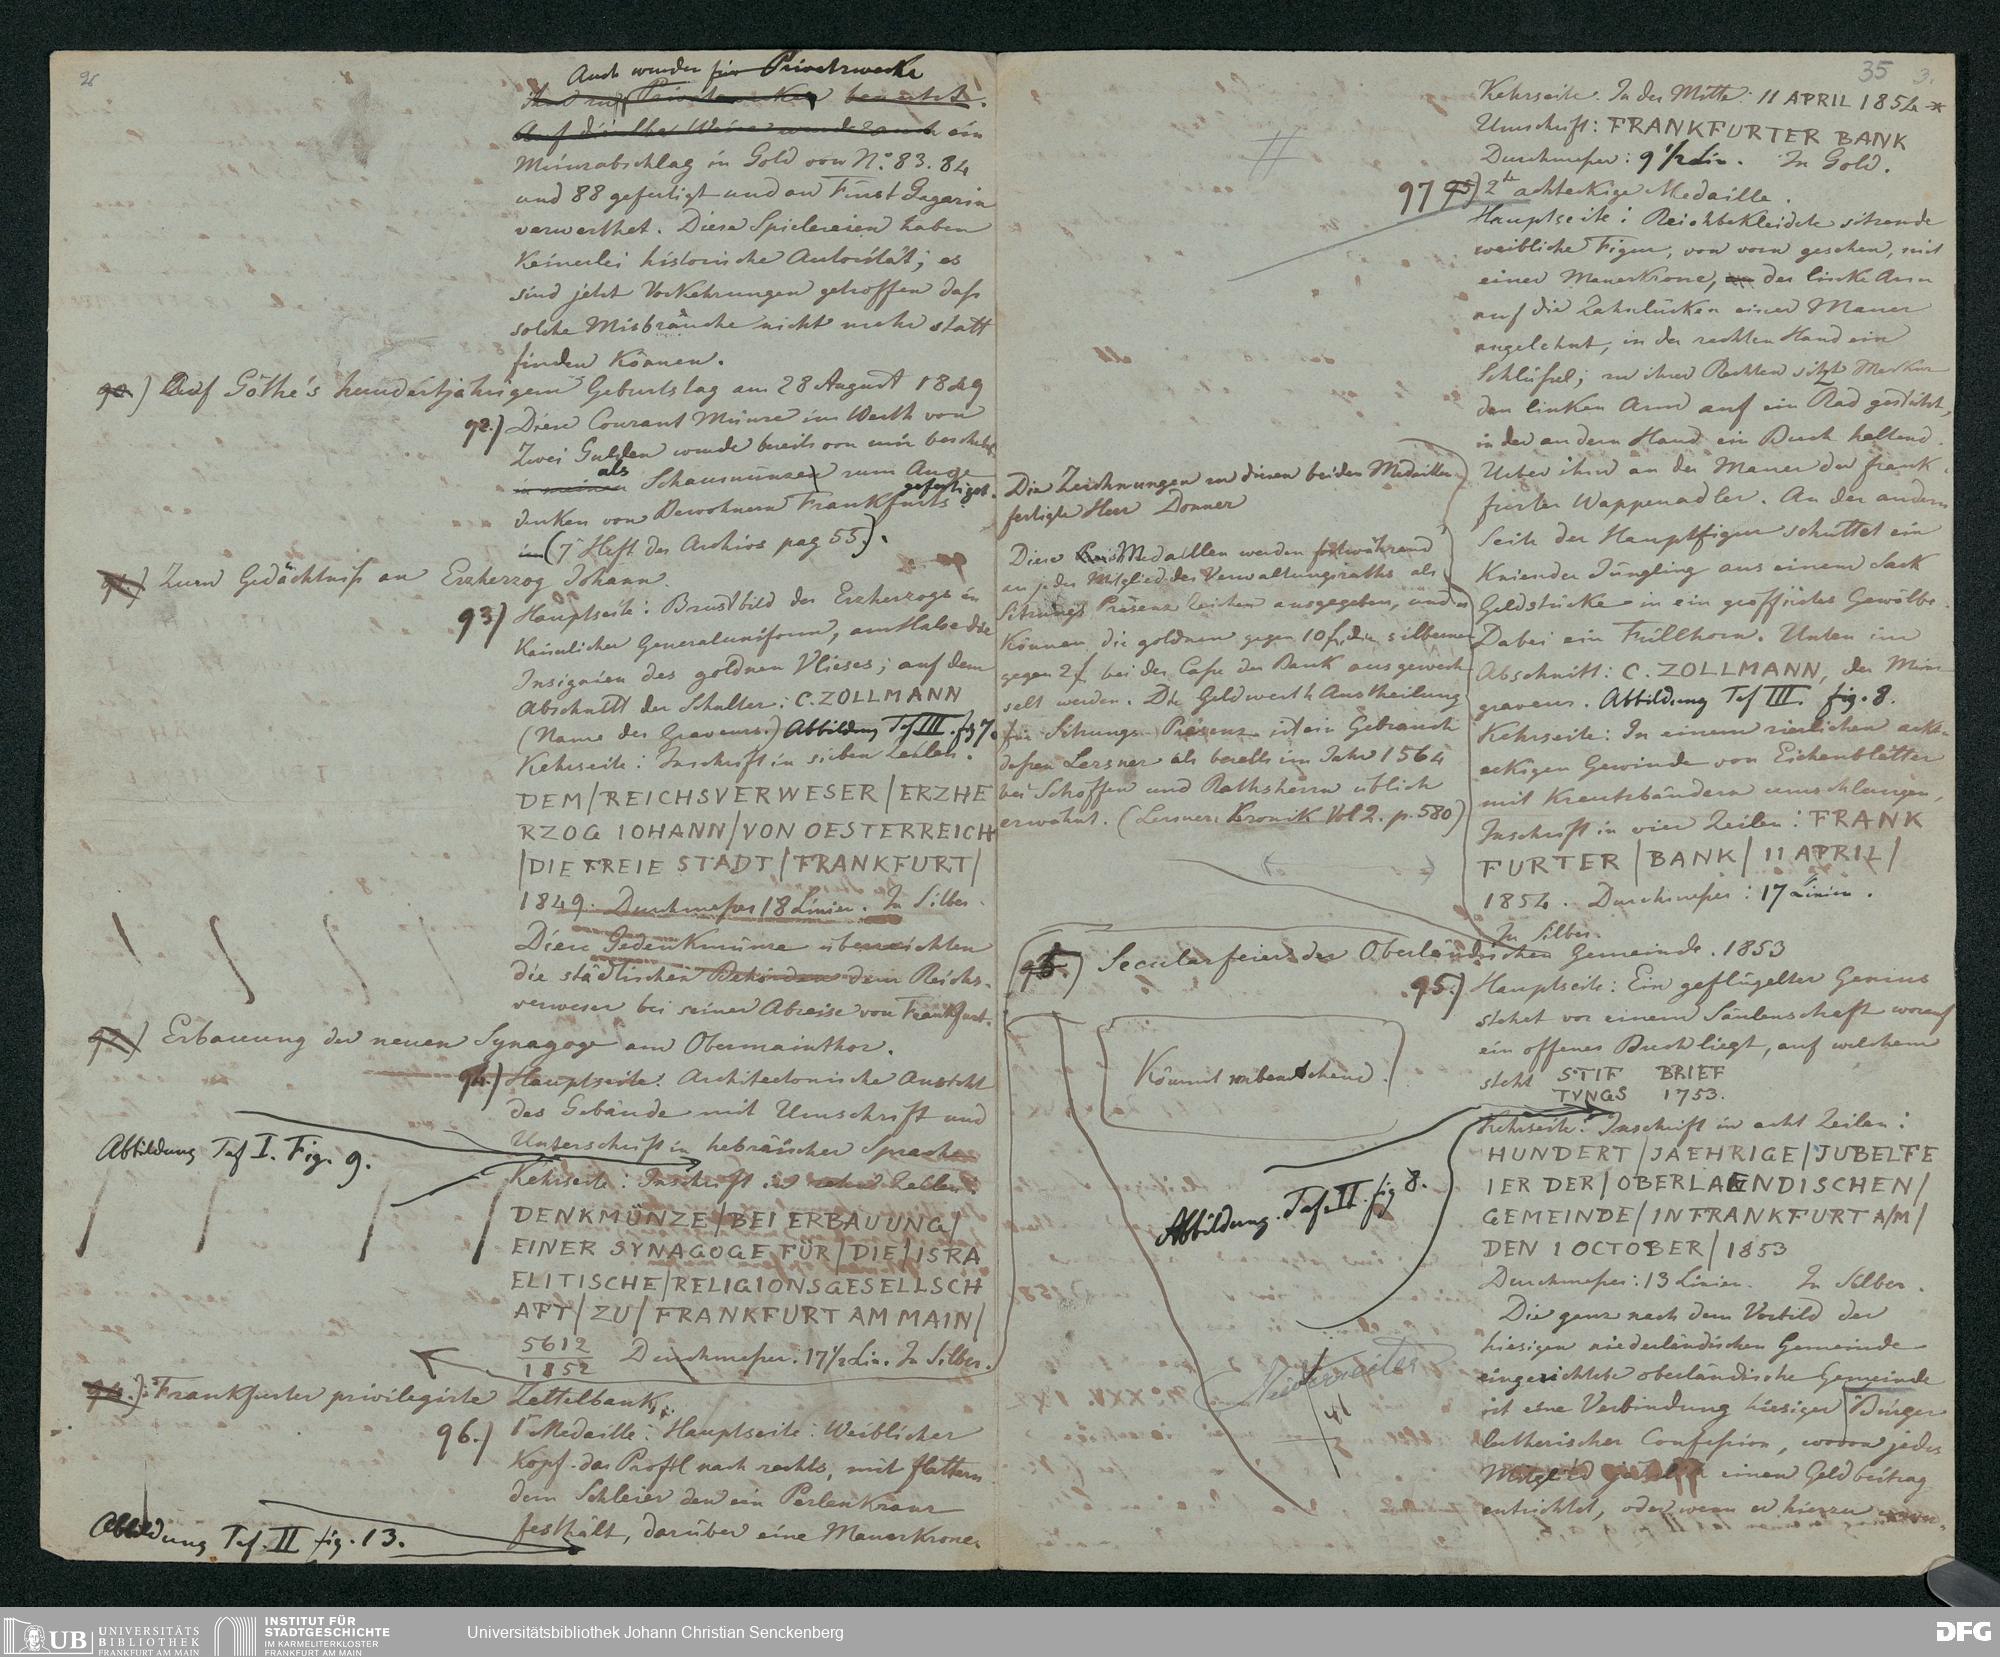 Auch wurde für Privatzwecke
ihnd zu Privatzwecken benutzt.
Auf dieselbe Weise wurde auch ein
Münzabschlag in Gold von N.º 83. 84
und 88 gefertigt und an Fürst Gagarin
verwerthet. Diese Spielereien haben
keinerlei historische Autorität; es
sind jetzt Vorkehrungen getroffen daß
solche Misbräuche nicht mehr statt
finden können.
90.) Auf Göthe's hundertjährigem Geburtstag am 28 August 1849
92.) Diese Courant Münze im Werth von
Zwei Gulden wurde bereits von mir
in meinen als Schaumünzen zum Ange
denken von Bewohnern Frankfurts gefertiget.
im (7 Heft des Archivs pag 55).
91.) Zum Gedächtniß an Erzherzog Johann.
93.) Hauptseite: Brustbild des Erzherzogs in
Kaiserlicher Generaluniform, am Halse die
Insignien des goldnen Vlieses; auf dem
Abschnitt der Schulter: C. ZOLLMANN
(Name des Graveurs.) Abbildung Taf III. fig 7.
Kehrseite: Inschrift in sieben Zeilen.
DEM/REICHSVERWESER/ERZHE
RZOG IOHANN/VON OESTERREICH
/DIE FREIE STADT/FRANKFURT/
1849. Durchmeßer 18 Linien. In Silber.
Diese Gedenkmünze überreichten
die städtischen Behörden dem Reichs-
verweser bei seiner Abreise von Frankfurt.
92.) Erbauung der neuen Synagoge am Obermainthor.
94.) Hauptseite: Architectonische Ansicht
des Gebäude mit Umschrift und
Unterschrift in hebräischer Sprache
Abbildung Taf I. Fig. 9.
Kehrseite: Inschrift in zehn Zeilen:
DENKMÜNZE/BEI ERBAUUNG/
EINER SYNAGOGE FÜR/DIE/ISRA
ELITISCHE/RELIGIONSGESELLSCH
AFT/ZU/FRANKFURT AM MAIN/
5612
1852 Durchmeßer: 17 1/2 Lin. In Silber.
94.) Frankfurter privilegirte Zettelbank.
96.) 1r Medaille: Hauptseite: Weiblicher
Kopf das Profil nach rechts, mit flattern
dem Schleier den ein Perlenkranz
festhält, darüber eine Mauerkrone.
Abbildung Taf. II fig. 13.
35 3.
Kehrseite: In der Mitte: 11 APRIL 1854 *
Umschrift: FRANKFURTER BANK
Durchmeßer: 9 1/2 Lin. In Gold.
97 95) 2te achteckige Medaille.
Hauptseite: Reichbekleidete sitzende
weibliche Figur, von vorn gesehen, mit
einer Mauerkrone, der linke Arm
auf die Zahnlücken einer Mauer
angelehnt, in der rechten Hand ein
Schlüßel; zu ihrer Rechten sitzt Merkur
den linken Arm auf ein Rad gestützt,
in der andern Hand ein Buch haltend.
Ueber ihm an der Mauer der frank
furter Wappenadler. An der andern
Seite der Hauptfigur schüttet ein
Kniender Jüngling aus einem Sack
Geldstücke in ein geöffnetes Gewölbe.
Dabei ein Füllhorn. Unten im
Abschnitt: C. ZOLLMANN, der Münz
graveur. Abbildung Taf III. fig. 8.
Kehrseite: In einem zierlichen acht-
eckigen Gewinde von Eichenblätter
mit Kreutzbändern umschlungen,
Inschrift in vier Zeilen: FRANK
FURTER/BANK/11 APRIL/
1854. Durchmeßer: 17 Linien.
In Silber.
Die Zeichnungen zu diesen beiden Medaillen
fertigte Herr Donner
Diese Medaillen werden fortwährend
an jedes Mitglied des Verwaltungsraths als
Sitzungs Präsenz Zeichen ausgegeben, und es
können die goldnen gegen 10 f, die silbernen
gegen 2 f, bei der Caße der Bank ausgewech
selt werden. Die Geldwerth Austheilung
für Sitzungs-Präsenz ist ein Gebrauch
deßen Lersner als bereits im Jahr 1564
bei Schöffen und Rathsherrn üblich
erwähnt. (Lersner Kronik Vol 2. p. 580)
95.) Secularfeier der Oberländischen Gemeinde. 1853
95.) Hauptseite: Ein geflügelter Genius
stehet vor einem Säulenschaft worauf
ein offenes Buch liegt, auf welchem
steht STIF BRIEF
TVNGS 1753.
Kömmt nebenstehend.
Kehrseite: Inschrift in acht Zeilen:
HUNDERT/JAEHRIGE/JUBELFE
IER DER/OBERLAENDISCHEN/
GEMEINDE/IN FRANKFURT A/M/
DEN 1 OCTOBER/1853
Abbildung Taf. II. fig 8.
Durchmeßer: 13 Linien. In Silber.
Die ganz nach dem Vorbild der
hiesigen niederländischen Gemeinde
eingerichtete oberländische Gemeinde
ist eine Verbindung hiesiger Bürger
lutherischer Confeßion, wovon jedes
Mitglied einen Geldbeitrag
entrichtet, oder wenn er hierzu
UB UNIVERSITÄTS
BIBLIOTHEK
FRANKFURT AM MAIN
INSTITUT FÜR
STADTGESCHICHTE
IM KARMELITERKLOSTER
FRANKFURT AM MAIN
Universitätsbibliothek Johann Christian Senckenberg
DFG